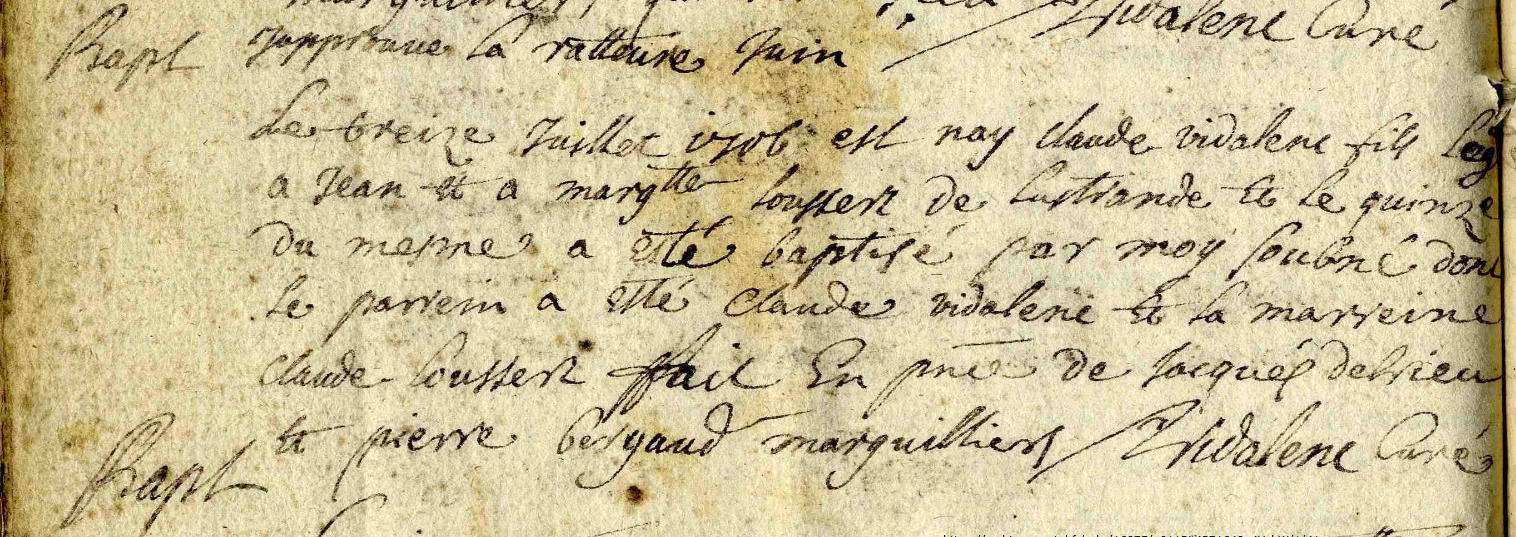 Vidalene Curé
Bapt Japprouve la ratteure Juin
Le treize Juillet 1706 est nay claude vidalene fils Leg
a Jean et a margtte loussert de lustrande et le quinze
du mesme a esté baptisé par moy soubné dont
le parrein a etté claude vidalene et la marreine
claude loussert ffait En pnce de Jacques delrieu
et pierre bergaud marguilliers Vidalene Curé
Bapt